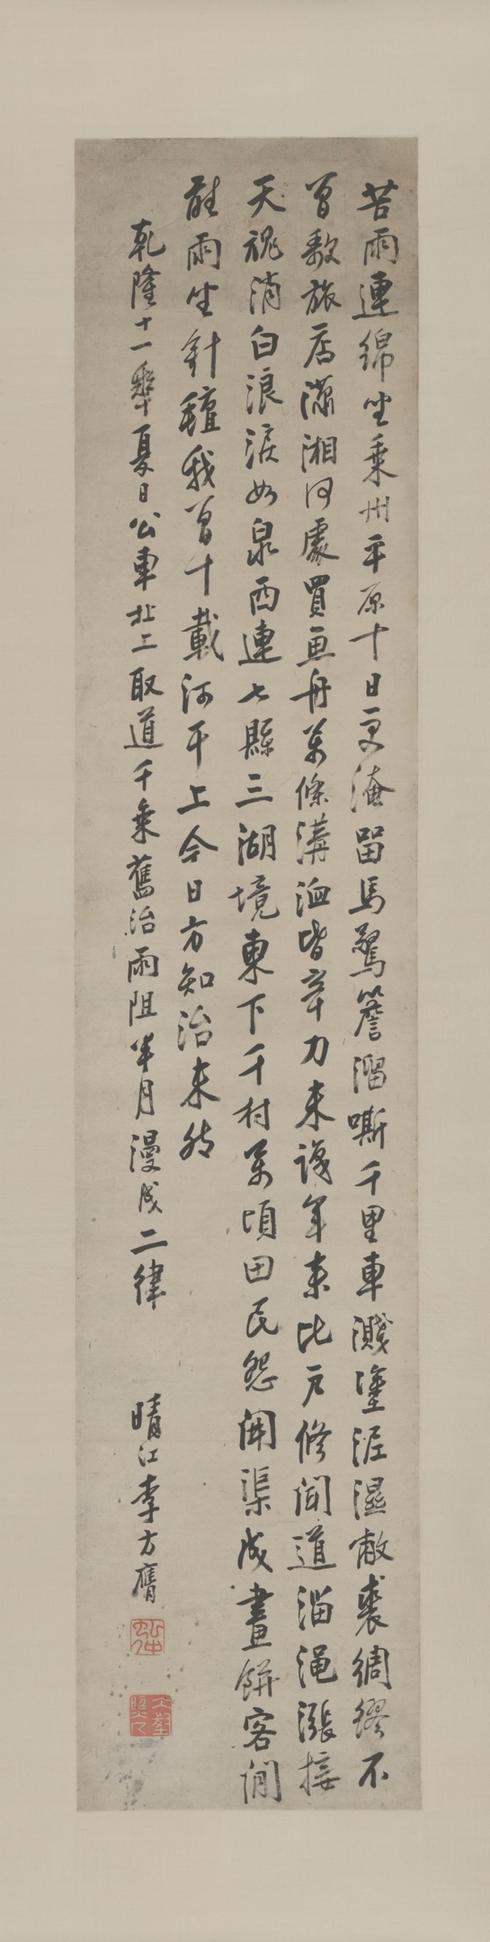 苦雨連綿坐乘州平原十日更淹留馬驚簷溜嘶千里車濺塗泥濕敝裘綢繆不
曾敷旅店瀟湘何處買魚舟萬條溝洫皆辛力未議年来比戶修聞道淄澠漲接
天魂消白浪淚如泉西連七縣三湖境東下千村萬頃田民怨開渠成畫餅客閒
聽雨坐針氊我曾十載河干上今日方知治未然
乾隆十一年夏日公車北上取道千乘舊治雨阻半月漫成二律
晴江李方膺